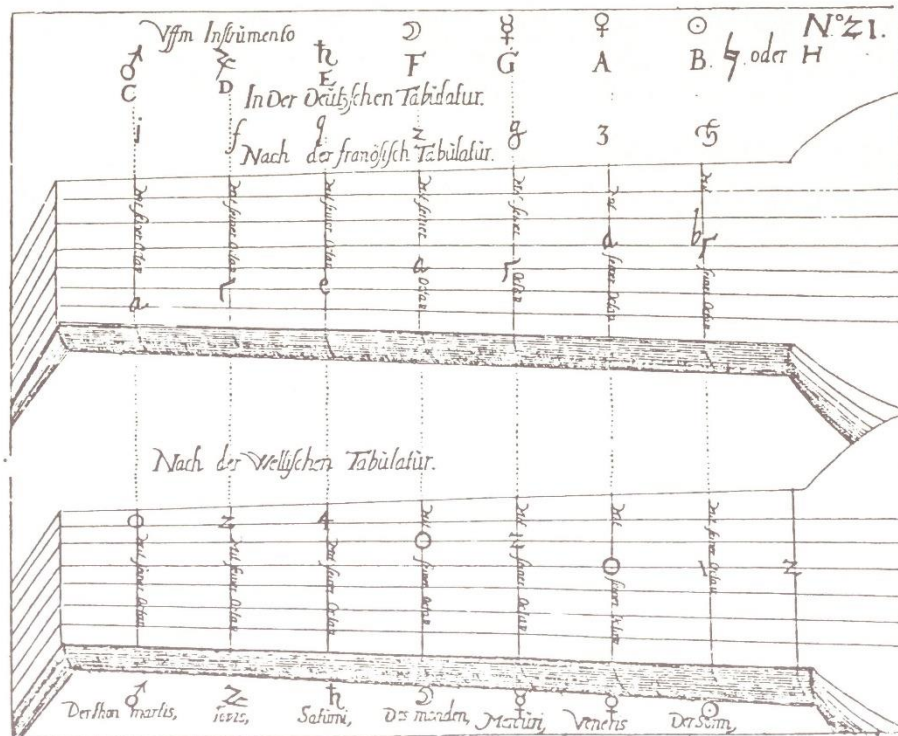 Vffm Instrumento ☽ ☿ ♀ ☉ N° 21.
♂ ♃ ♄ F G A B. ♮ oder H
C D E
In Der Deutschen Tabulatur.
j f q z g 3
Nach der franösisch Tabulatur.
mit seiner Octav mit seiner Octav mit seiner Octav mit seiner Octav mit seiner Octav mit seiner Octav mit seiner Octav
d b r
a r
a r e
Nach der Wellischen Tabulatur.
mit seiner Octav mit seiner Octav mit seiner Octav mit seiner Octav mit seiner Octav mit seiner Octav
♂ ♃ ♄ ☽ ☿ ♀ ☉
Der thon martis, iovis, Saturni, Des monden, Mercuri, Veneris Der Sonn,